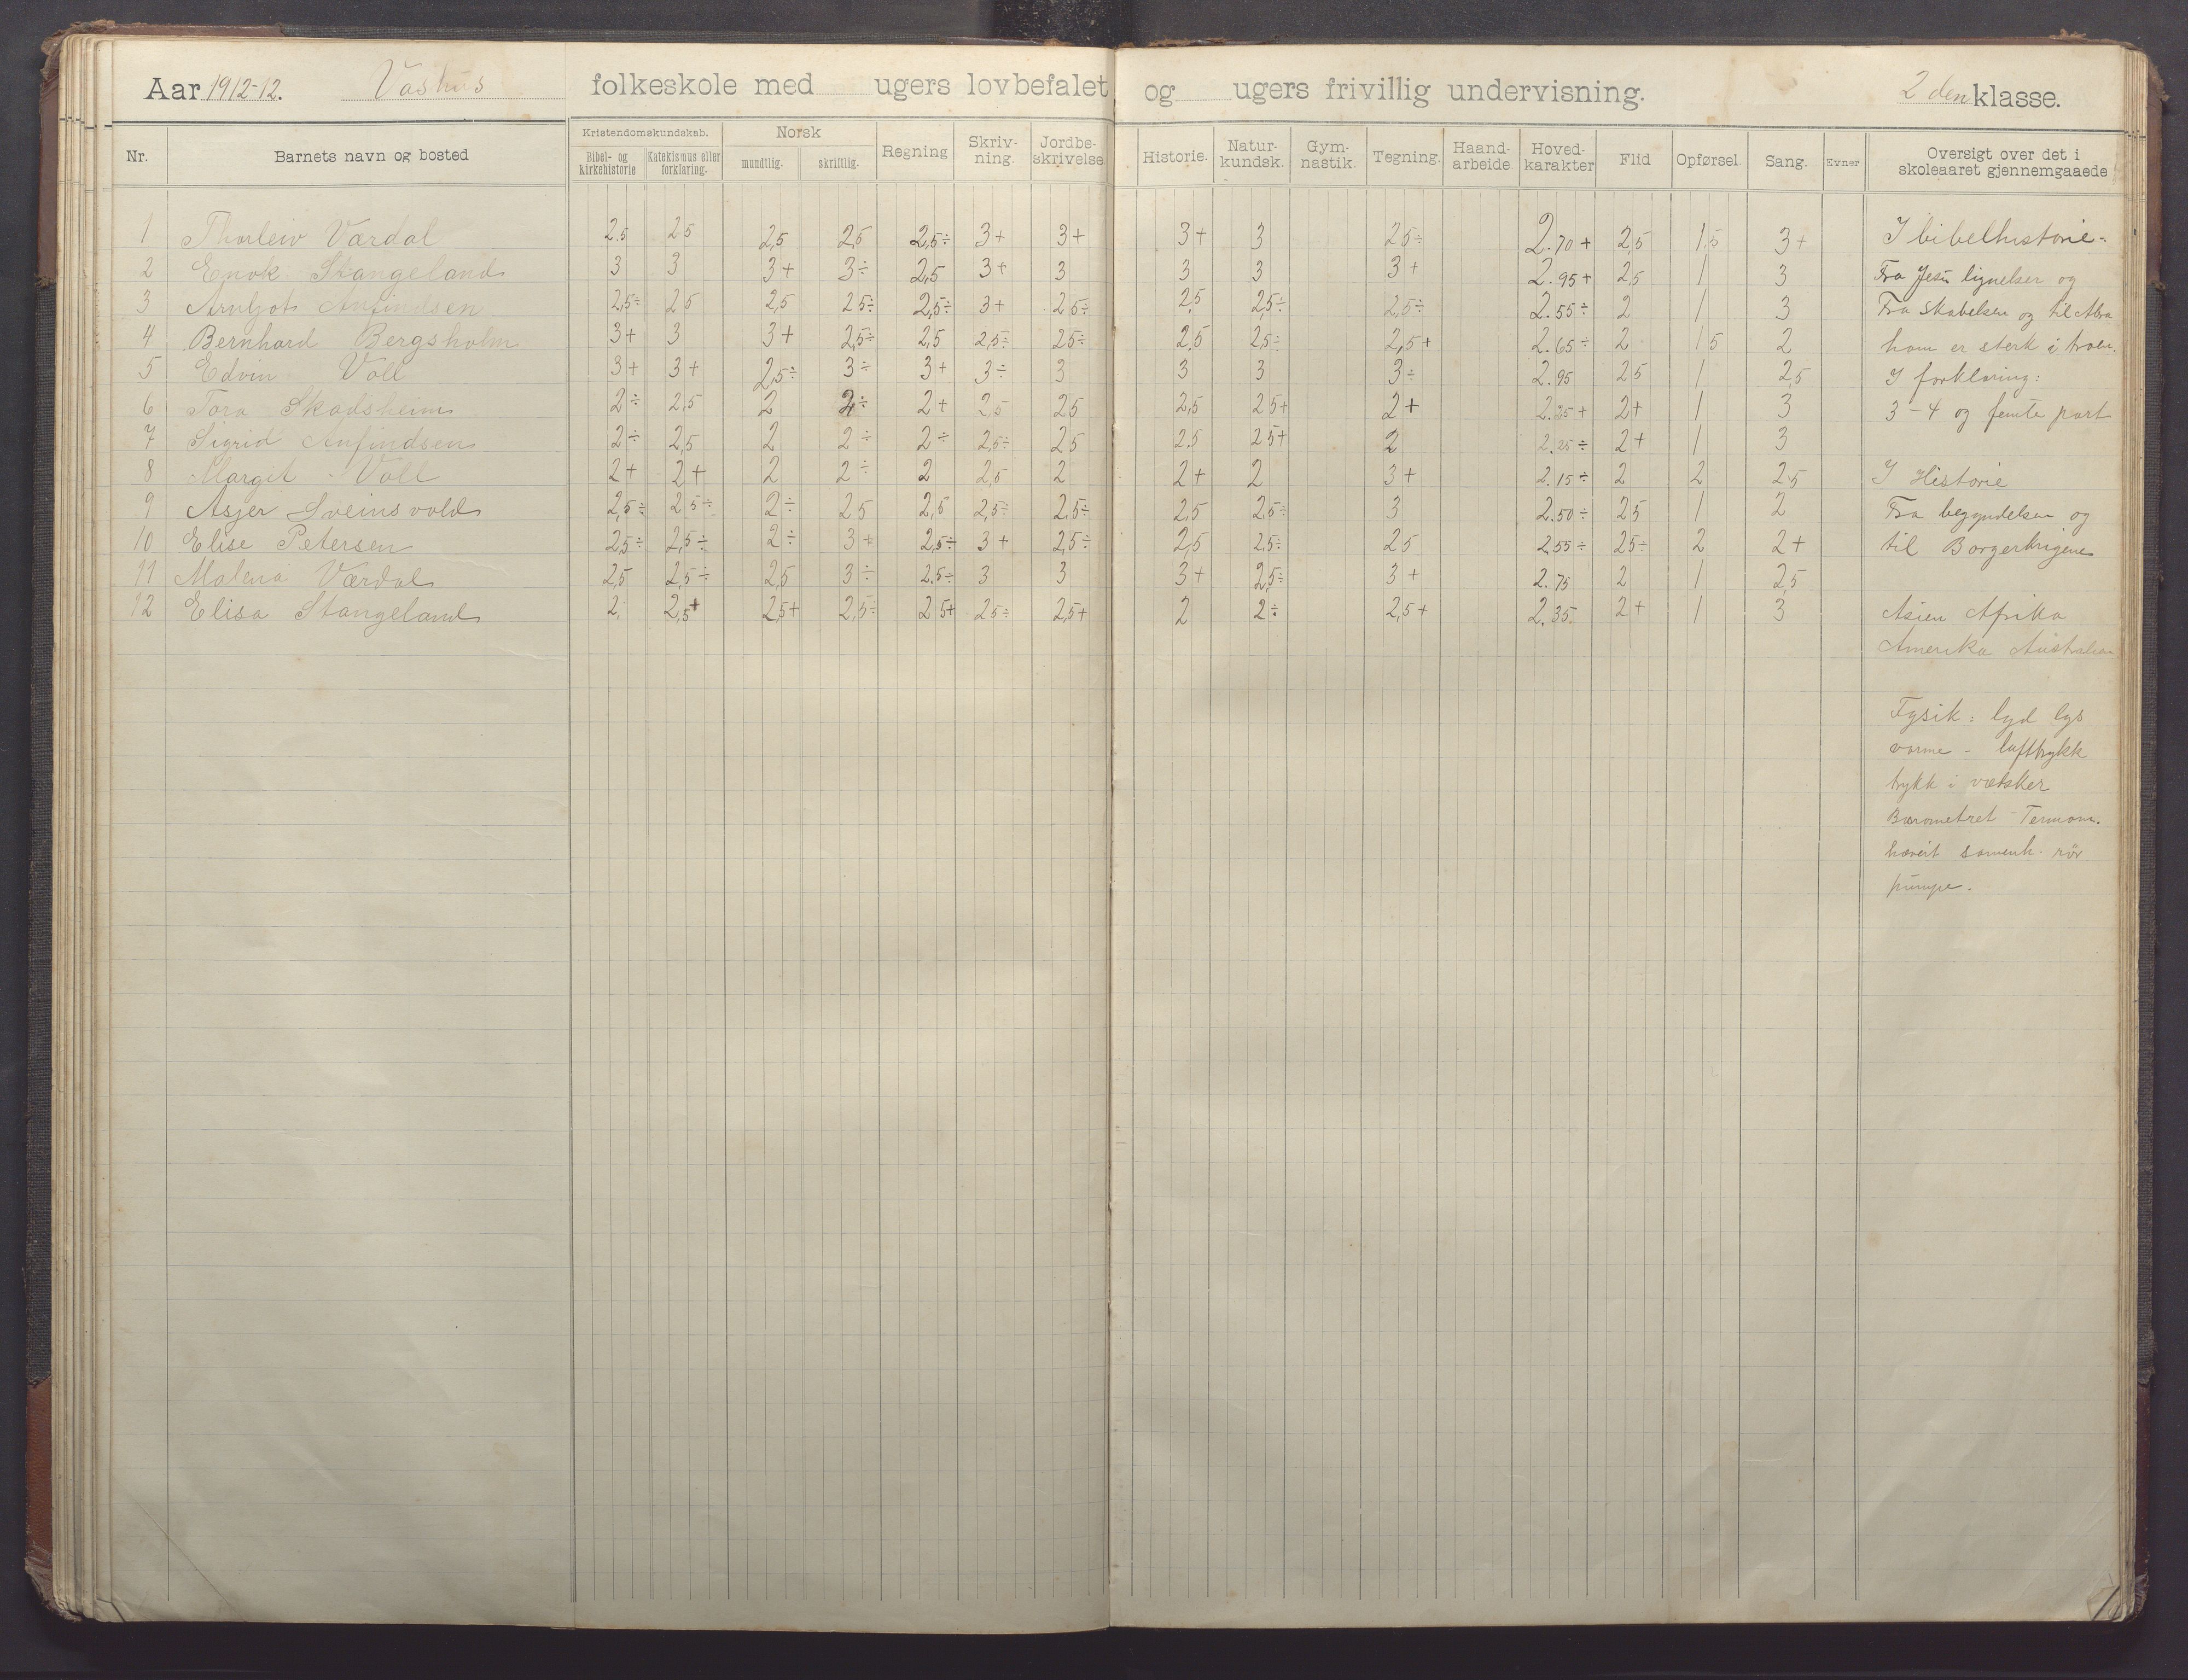 Aar 1912-12. Vashus folkeskole med ugers lovbefalet og ugers frivillig undervisning. 2 den klasse.
Nr. Barnets navn og bosted Kristendomskundskab. Bibel- og kirkehistorie Katekismus eller forklaring. Norsk mundtlig. skriftlig. Regning Skriv-ning. Jordbe-skrivelse Historie. Natur-kundsk. Gym-nastik. Tegning. Haand-arbeide. Hoved-karakter Flid Opførsel. Sang. Evner Oversigt over det i skoleaaret gjennemgaaede
1 Thorleiv Vardal 2.5 2.5 2,5 2,5 2,5÷ 3+ 3+ 3+ 3 2.5÷ 2.70+ 2,5 1,5 3+ I bibelhistorie-
2 Enok Stangeland 3 3 3+ 3÷ 2,5 3+ 3 3 3 3+ 2.95+ 2,5 1 3 Fra Jesu lignelser og
3 Arnljot Anfindsen 2,5÷ 2.5 2,5 2.5÷ 2,5÷ 3+ 2.5÷ 2,5 2,5÷ 2,5÷ 2.55÷ 2 1 3 Fra skabelsen og til Abra
4 Bernhard Bergsholm 3+ 3 3+ 2,5÷ 2,5 2,5÷ 2.5÷ 2,5 2,5÷ 2,5+ 2.65÷ 2 1.5 2 ham er sterk i troen.
5 Edvin Voll 3+ 3+ 2,5÷ 3÷ 3+ 3÷ 3 3 3 3÷ 2.95 2.5 1 2,5 I forklaring:
6 Tora Skadsheim 2÷ 2,5 2 2÷ 2+ 2,5 2.5 2,5 2.5+ 2+ 2.25+ 2+ 1 3 3-4 og femte part
7 Sigrid Anfindsen 2÷ 2,5 2 2÷ 2÷ 2,5÷ 2.5 2.5 2.5+ 2 2.25÷ 2+ 1 3
8 Margit Voll 2+ 2+ 2 2÷ 2 2,5 2 2+ 2 3+ 2.15÷ 2 2 2,5 I Historie
9 Asjer Sveinsvold 2,5÷ 2.5÷ 2÷ 2.5 2,5 2,5÷ 2,5÷ 2,5 2.5÷ 3 2.50÷ 2.5 1 2 Fra begyndelsen og
10 Elise Petersen 2,5÷ 2,5÷ 2÷ 3+ 2,5÷ 3+ 2,5÷ 2,5 2,5÷ 2.5 2.55÷ 2.5÷ 2 2+ til Borgerkrigene
11 Malena Værdal 2,5 2,5÷ 2,5 3÷ 2.5÷ 3 3 3+ 2,5÷ 3+ 2.75 2 1 2,5
12 Elisa Stangeland 2. 2,5+ 2,5+ 2,5÷ 2.5+ 2.5÷ 2,5+ 2 2÷ 2,5+ 2.35. 2+ 1 3 Asien Afrika
Amerika Australien
Fysik: lyd lys
varme - lufttrykk
trykk i vætsker
Barometret - Termom.
hævert samenh. rör
pumpe.